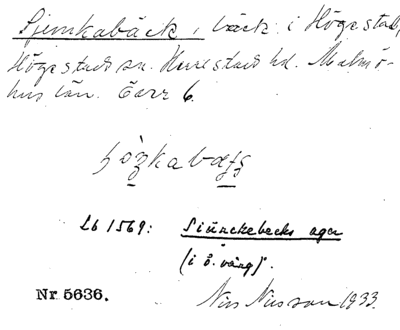 Sjunkabäck, bäck i Högestad,
Högestads sn. Herrestads hd. Malmö-
hus län.
Lb 1569: Siünckebecks ager
(i ö. väng).
Nr 5636. Nils Nilsson 1933.